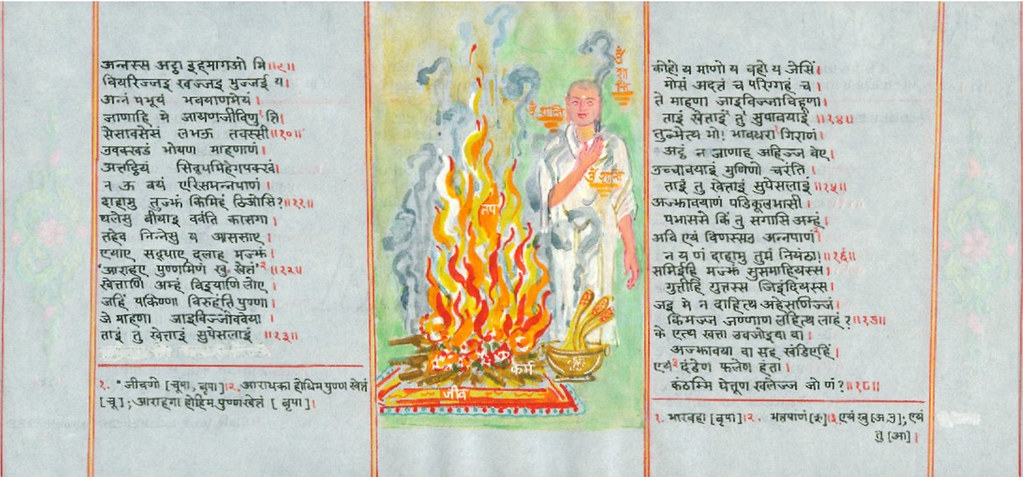 अन्नस्स अट्ठा इहमागओ मि॥९॥
वियरिज्जइ खज्जइ भुज्जई य
अन्नं पभूयं भवयाणमेयं।
जाणाहि मे जायणजीविणु त्ति
सेसावसेसं लभऊ तवस्सी॥१०॥
उवक्खडं भोयण माहणाणं।
अत्तट्ठियं सिद्धमिहेगपक्खं।
न ऊ वयं एरिसमन्नपाणं।
दाहामु तुज्झं किमिहं ठिओसि?॥११॥
थलेसु बीयाइ ववंति कासगा।
तहेव निन्नेसु य आससाए।
एयाए सद्धाए दलाह मज्झं।
'आराहए पुण्णमिणं खु खेत्तं'²॥१२॥
खेत्ताणि अम्हं विइयाणि लोए।
जहिं पकिण्णा विरुहंति पुण्णा।
जे माहणा जाइविज्जोववेया।
ताइं तु खेत्ताइं सुपेसलाइं॥१३॥
१. °जीवणो [चूपा, बृपा]।२. आराधका होहिम पुण्ण खेत्तं
[चू]; आराहगा होहिम पुण्णखेत्तं [बृपा]।
ॐ शान्ति
ॐ शान्ति
ॐ शान्ति
तप
कर्म
जीव
कोहो य माणो य वहो य जेसिं।
मोसं अदत्तं च परिग्गहं च।
ते माहणा जाइविज्जाविहूणा।
ताइं खेत्ताइं तु सुपावयाइं॥१४॥
तुब्भेत्थ भो! भारधरा¹ गिराणं।
अट्ठं न जाणाह अहिज्ज वेए।
उच्चावयाइं मुणिणो चरंति।
ताइं तु खेत्ताइं सुपेसलाइं॥१५॥
अज्झावयाणं पडिकूलभासी।
पभाससे किं तु सगासि अम्हं।
अवि एयं विणस्सउ अन्नपाणं²
न य णं दाहामु तुमं नियंठा!॥१६॥
समिईहि मज्झं सुसमाहियस्स।
गुत्तीहि गुत्तस्स जिइंदियस्स।
जइ मे न दाहित्थ अहेसणिज्जं।
किमज्ज जण्णाण लहित्थ लाहं?॥१७॥
के एत्थ खत्ता उवजोइया वा।
अज्झावया वा सह खंडिएहिं।
एयं³ दंडेण फलेण हंता।
कंठम्मि घेत्तूण खलेज्ज जो णं?॥१८॥
१. भारवहा [बृपा]।२. भत्तपाणं [बृ]।३. एयं खु [अ,उ]; एयं
तु [आ]।